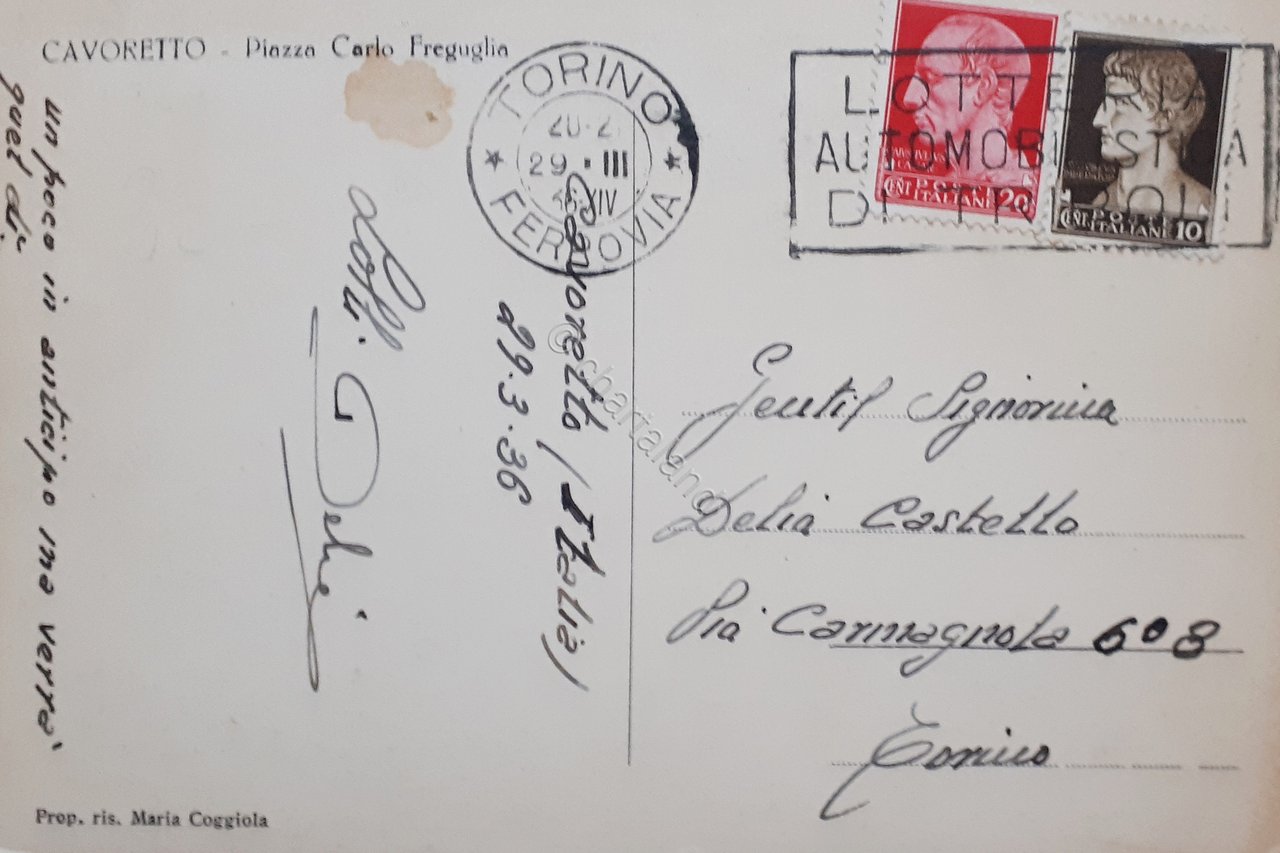 CAVORETTO - Piazza Carlo Freguglia
TORINO
29 · III
XIV
FERROVIA
LOTTERIA
AUTOMOBILISTICA
DI TRIPOLI
CENT POSTE 20
ITALIANE
CENT POSTE 10
ITALIANE
Cavoretto (Italia)
29.3.36
un poco in anticipo ma verrà
quel dì
Gentil Signorina
Delia Castello
Via Carmagnola 6 o 8
Torino
© chartaland
Prop. ris. Maria Coggiola